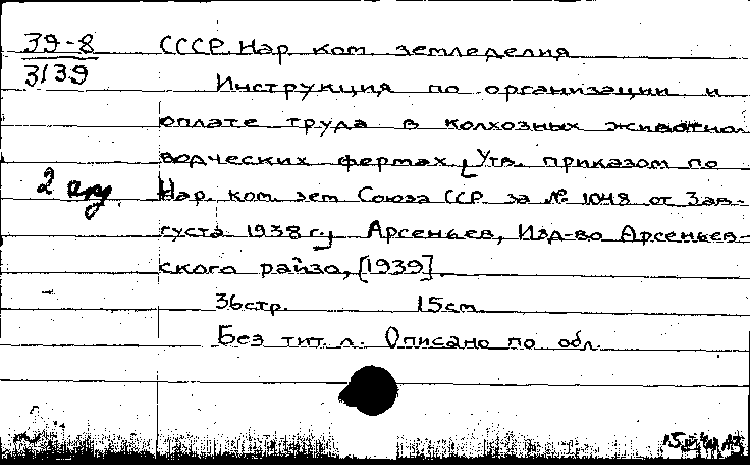 39-8
3139
СССР. Нар. ком. земледелия
Инструкция по организации и
оплате труда в колхозных животно-
водческих фермах. [Утв. приказом по
2 арг.
Нар. ком. зем. Союза ССР за № 1048 от 3 ав-
густа 1938 г.] Арсеньев, Изд-во Арсеньев-
ского райзо, [1939].
36 стр. 15 см.
Без тит. л. Описано по обл.